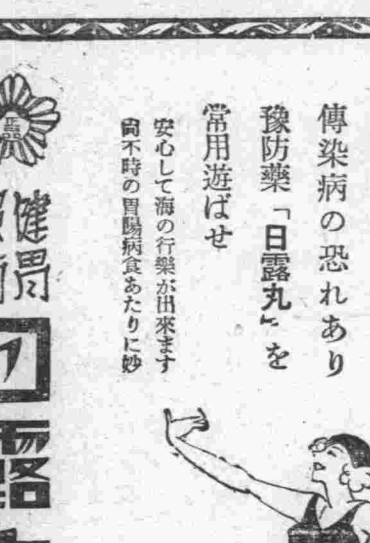 傳染病の恐れあり
豫防藥「日露丸」を
常用遊ばせ
安心して海の行樂が出來ます
尙不時の胃腸病食あたりに妙
健胃
露